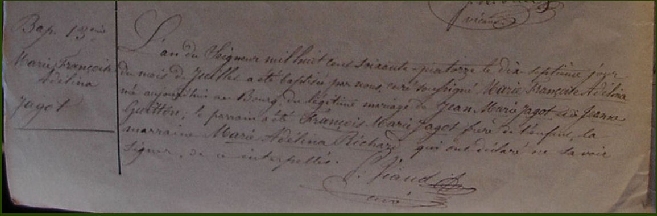 Bap. 13ème
Marie Françoise
Adelina
Jagot
L'an du Seigneur mil huit cent soixante quatorze le dix septième jour
du mois de Juillet a été baptisée par nous curé soussigné Marie Françoise Adelina
née aujourd'hui au Bourg, du légitime mariage de Jean Marie Jagot et de Jeanne
Guitton, le parrain a été François Marie Jagot frère de l'enfant, la
marraine Marie Adelina Richard qui ont déclaré ne savoir
signer, de ce interpellés.
curé